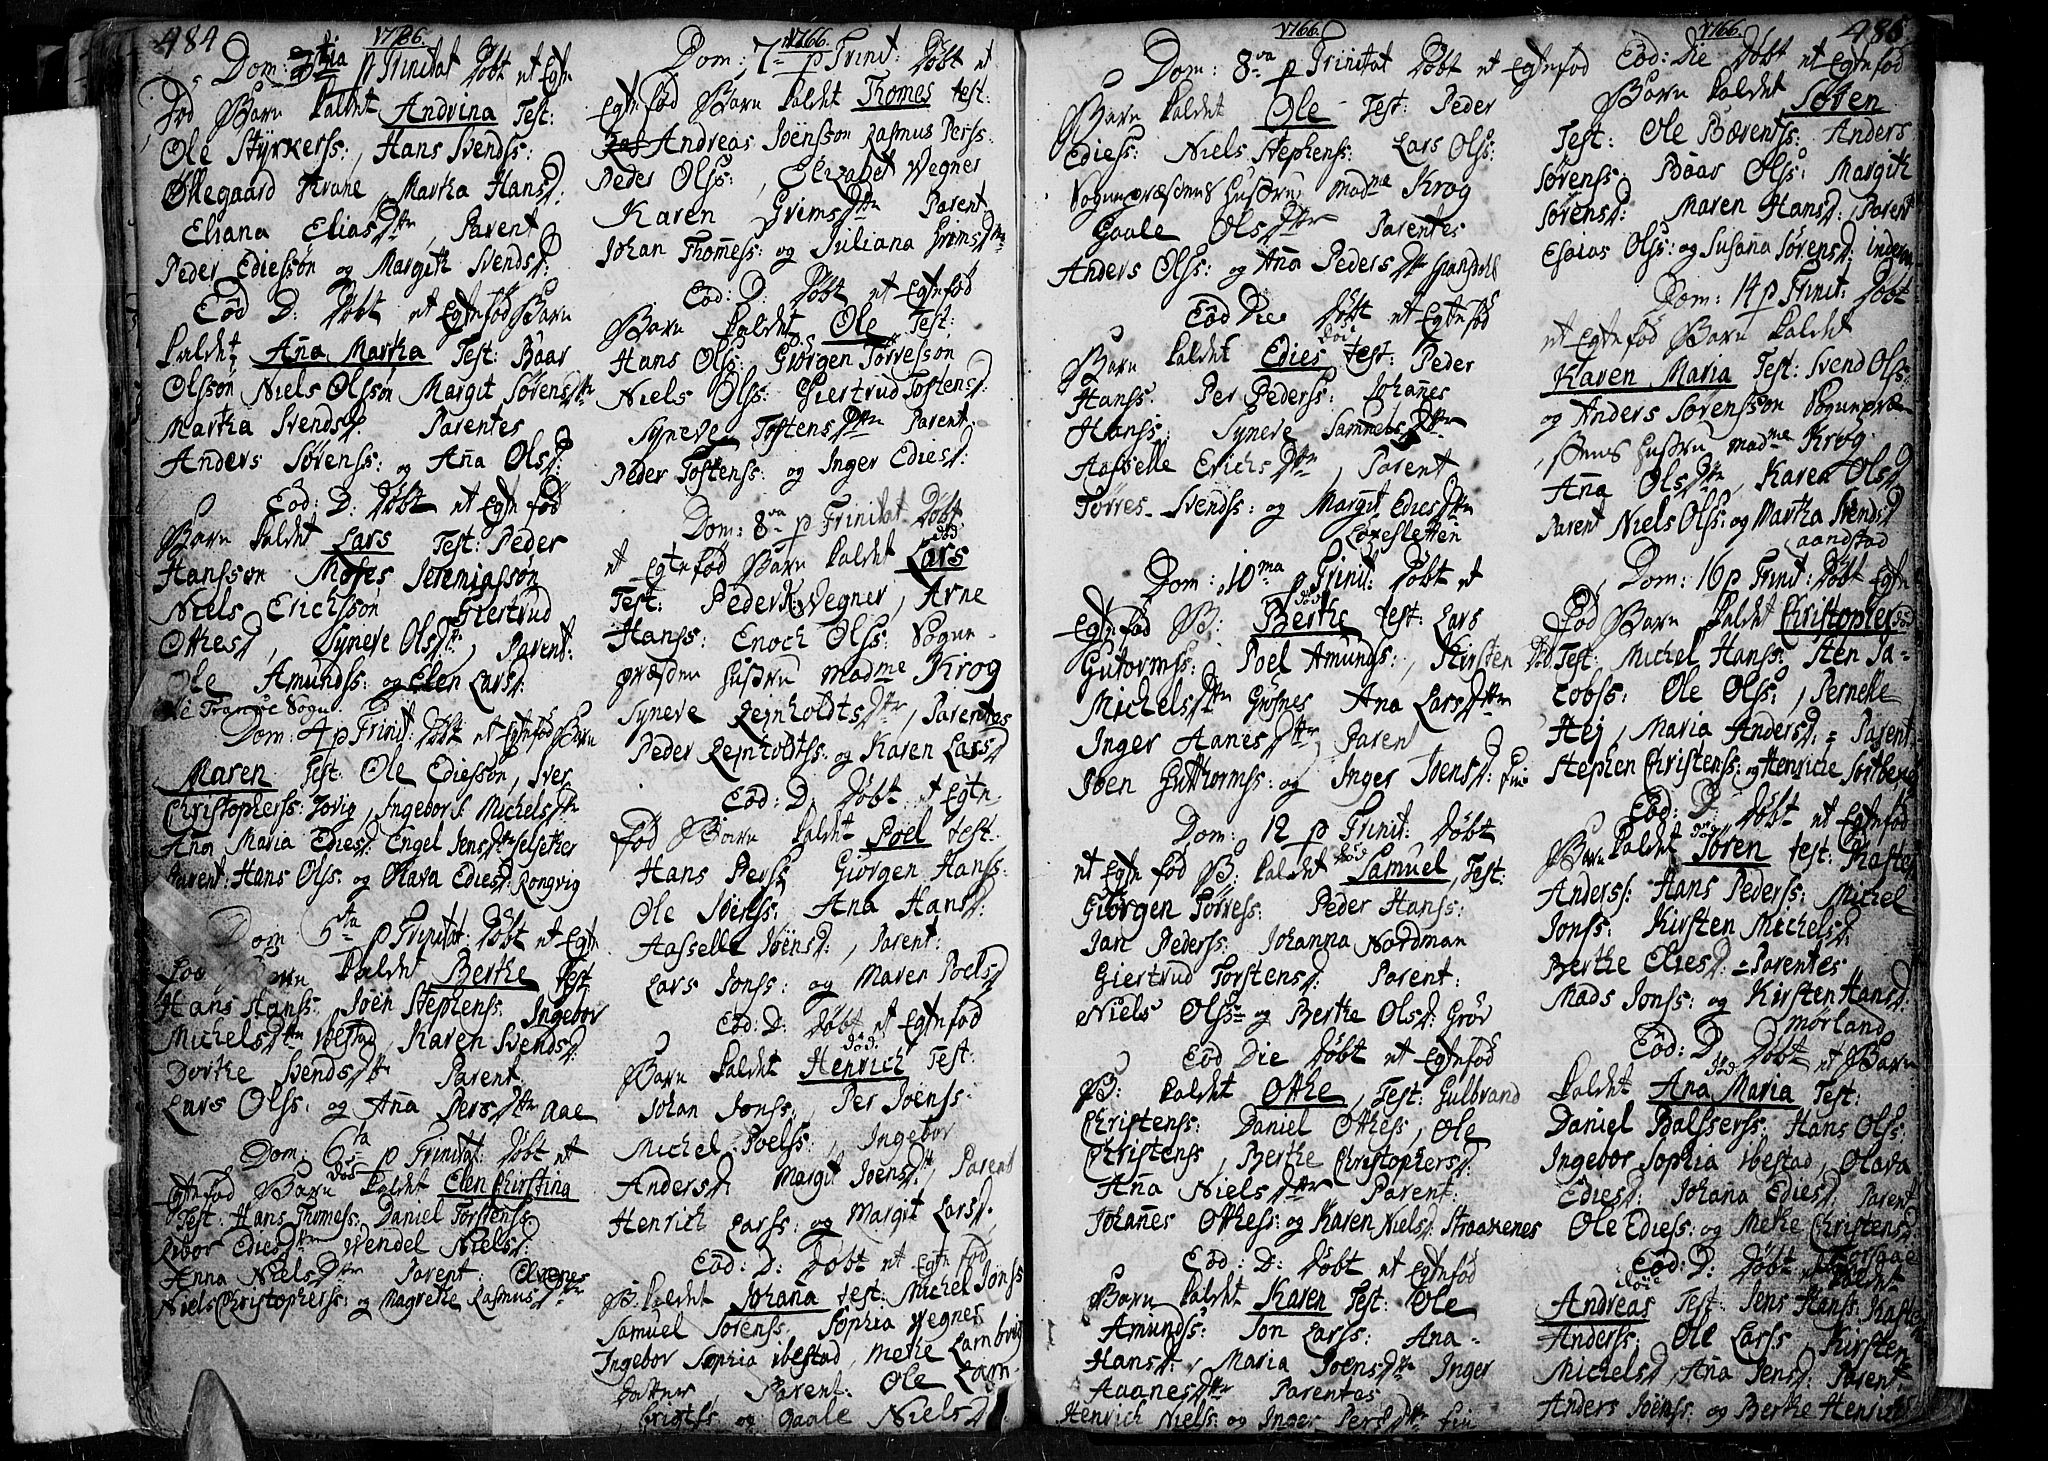 484
1766.
Dom: 3tia p Trinitat Døbt et Egte
Fød Barn kaldet Andrina Test:
Ole Styrkerss:, Hans Svendss:
Øllegaard Krane, Martha Hansd:
Eliana Eliasdttr, Parent
Peder Ediessøn og Margith Svendsd:
Eod D: Døbt et Egtefød Barn
kaldet Aña Martha Test: Baar
Olsson Niels Olsson Margit Sørensdttr
Martha Svendsd. Parentes
Anders Sørenss: og Aña Olsd:
Eod: D: Døbt et Egtefød
Barn kaldet Lars Test: Peder
Hansson Moses Jeremiassøn
Niels Erichssøn Giertrud
Othesd, Syneve Olsdtr, Parent:
Ole Amundss: og Elen Larsd:
Tranøe Sogn
Dom: 4 p Trinit: Døbt et Egtefød Barn
Maren Test: Ole Ediessøn, Iver
Christopherss: Ingebor Michelsdtr
Ana Maria Ediesd: Engel Jensdttr
Parent: Hans Olss: og Olava Ediesd: Rongvig
Dom: 5ta p Trinitat: Døbt et Egte
Fød Barn kaldet Berthe Test:
Hans Hanss: Joen Stephenss: Ingebor
Michelsdtr Ibestad, Karen Svendsd:
Dorthe Svendsdttr Parent
Lars Olss: og Aña Persdttr Aae
Dom: 6ta p Trinitat: Døbt et
Egtefød Barn kaldet Elen Chirsting
død
Test: Hans Thomess: Daniel Torstenss:
Ediesdttr Wendel Nielsd:
Anna Nielsdttr Parent: Elvenes
Niels Christopherss: og Magrethe Rasmusdttr
1766.
Dom: 7 p Trinit: Døbt et
Egtefød Barn kaldet Thomes test:
Andreas Joensson Rasmus Perss:
Peder Olss:, Elizabet Wegner
Karen Grimsdttr Parent
Johan Thomess: og Juliana Grimsdttr
Eod: D: Døbt et Egtefød
Barn kaldet Ole Test:
Hans Olss: Giørgen Torresson
Niels Olss: Giertrud Tostensd:
Syneve Tostensdttr Parent
Peder Tostenss: og Inger Ediesd:
Dom: 8va p Trinitat Døbt
et Egtefød Barn kaldet Lars
død
Test: Peder K: Wegner, Arne
Hanss: Enoch Olss: Sogne
præsten hustru madme Krog
Syneve Reinholdtsdttr, Parentes
Peder Reinholdtss: og Karen Larsd
Eod: D: Døbt et Egte
fød Barn kaldet Poel test:
Hans Perss Giørgen Hanss:
Ole Joenss: Ana Hansd:
Aasselle Joensd:, Parent:
Lars Jonss: og Maren Poelsd
Eod: D: Døbt et Egtefød
Barn kaldet Henrich Test:
død:
Johan Jonss, Per Joenss:
Michel Poelss:, Ingebor
Andersd: Margit Joensdtr, Parent
Henrich Larss: og Margit Larsd.
Eod: D: Døbt et Egtefød
B: kaldet Johana test: Michel Jonss
Samuel Sørenss: Sophia Wegner
Ingebor Sophia Ibestad, Methe Lambrig
datter, Parent: Ole Lam-
brigtss og Gaale Nielsd:
1766.
Dom: 8va p Trinitat Døbt et Egtefød
Barn kaldet Ole Test: Peder
Ediess: Niels Stephenss: Lars Olss:
Sognepræstens hustru madme Krog
Gaale Olsdttr Parentes
Anders Olss: og Aña Pedersdttr
Eod Die Døbt et Egtefød
Barn kaldet Edies test: Peder
Hanss: Per Pederss: Johañes
Hanss: Syneve Samuelsdttr
Aasselle Erichsdttr, Parent
Torres Svendss: og Margit Ediesdttr
Dom: 10ma p Trinit: Døbt et
Egtefød B: Berthe test: Lars
død
Gutormss: Poel Amunds:, Kirsten
Michelsdttr Ana Larsdttr
Inger Hanesdttr Parent
Joen Gutthormss: og Inger Joensd:
Dom: 12 p Trinit: Døbt
et Egtefød B: kaldet Samuel, Test:
død
Giørgen Torress: Peder Hanss:
Jan Pederss: Johanna Nordman
Giertrud Torstensd: Parent:
Niels Olss- og Berthe Olsd: Grov
Eod Die Døbt et Egtefød
B: kaldet Othe, Test: Gulbrand
Christenss: Daniel Othess, Ole
Christenss, Berthe Christophersd:
Ana Nielsdttr Parent:
Johañes Othess: og Karen Nielsd: Straamenes
Eod: D: Døbt et Egtefød
Barn kaldet Karen Test: Ole
Amundss: Jon Larss: Ana
Hansd:, Maria Joensdttr Inger
Aaanesdttr Parentes
Henrich Nielss: og Inger Persdttr
1766.
485
Eod: Die Døbt et Egtefød
Barn kaldet Søren
Test: Ole Bærentss: Anders
Sørenss: Baar Olss: Margith
Sørensd: Maren Hansd:, Parent
Esaias Olss: og Susaña Sørensd:
Dom: 14 p Trinit: Døbt
et Egtefød Barn kaldet
Karen Maria Test: Svend Olss:
og Anders Sørensson Sognepræ
stens hustru madme Krog
Aña Olsdttr, Karen Olsd
Parent Niels Olss: og Martha Svendsd
aandstad
Dom: 16 p Trinit: Døbt Egte
Fød Barn kaldet Christopher
Test: Michel Hanss: Sten Ja-
cobss: Ole Olss:, Pernelle
Hej, Maria Andersd: = Parent
Stephen Christenss: og Henriche
Eod: D: Døbt et Egtefød
Barn kaldet Søren test:
død
Anderss: Hans Pederss: Michel
Jonss: Kirsten Michelsd.
Berthe Eliesd: = Parentes
Mads Jonss: og Kirsten Hansd:
Mørland
Eod: D: Døbt et Barn
kaldet Ana Maria Test:
død
Daniel Balsserss: Hans Olss:
Ingebor Sophia Ibestad, Olava
Ediesd: Johana Ediesd, Parent
Ole Ediess: og Methe Christensd
Eod: D: Døbt et kaldet
Andreas Test: Jens Hanss:
Anderss: Ole Larss Kirsten
Michelsd, Aña Jensd: Parent
Anders Joenss: og Berthe